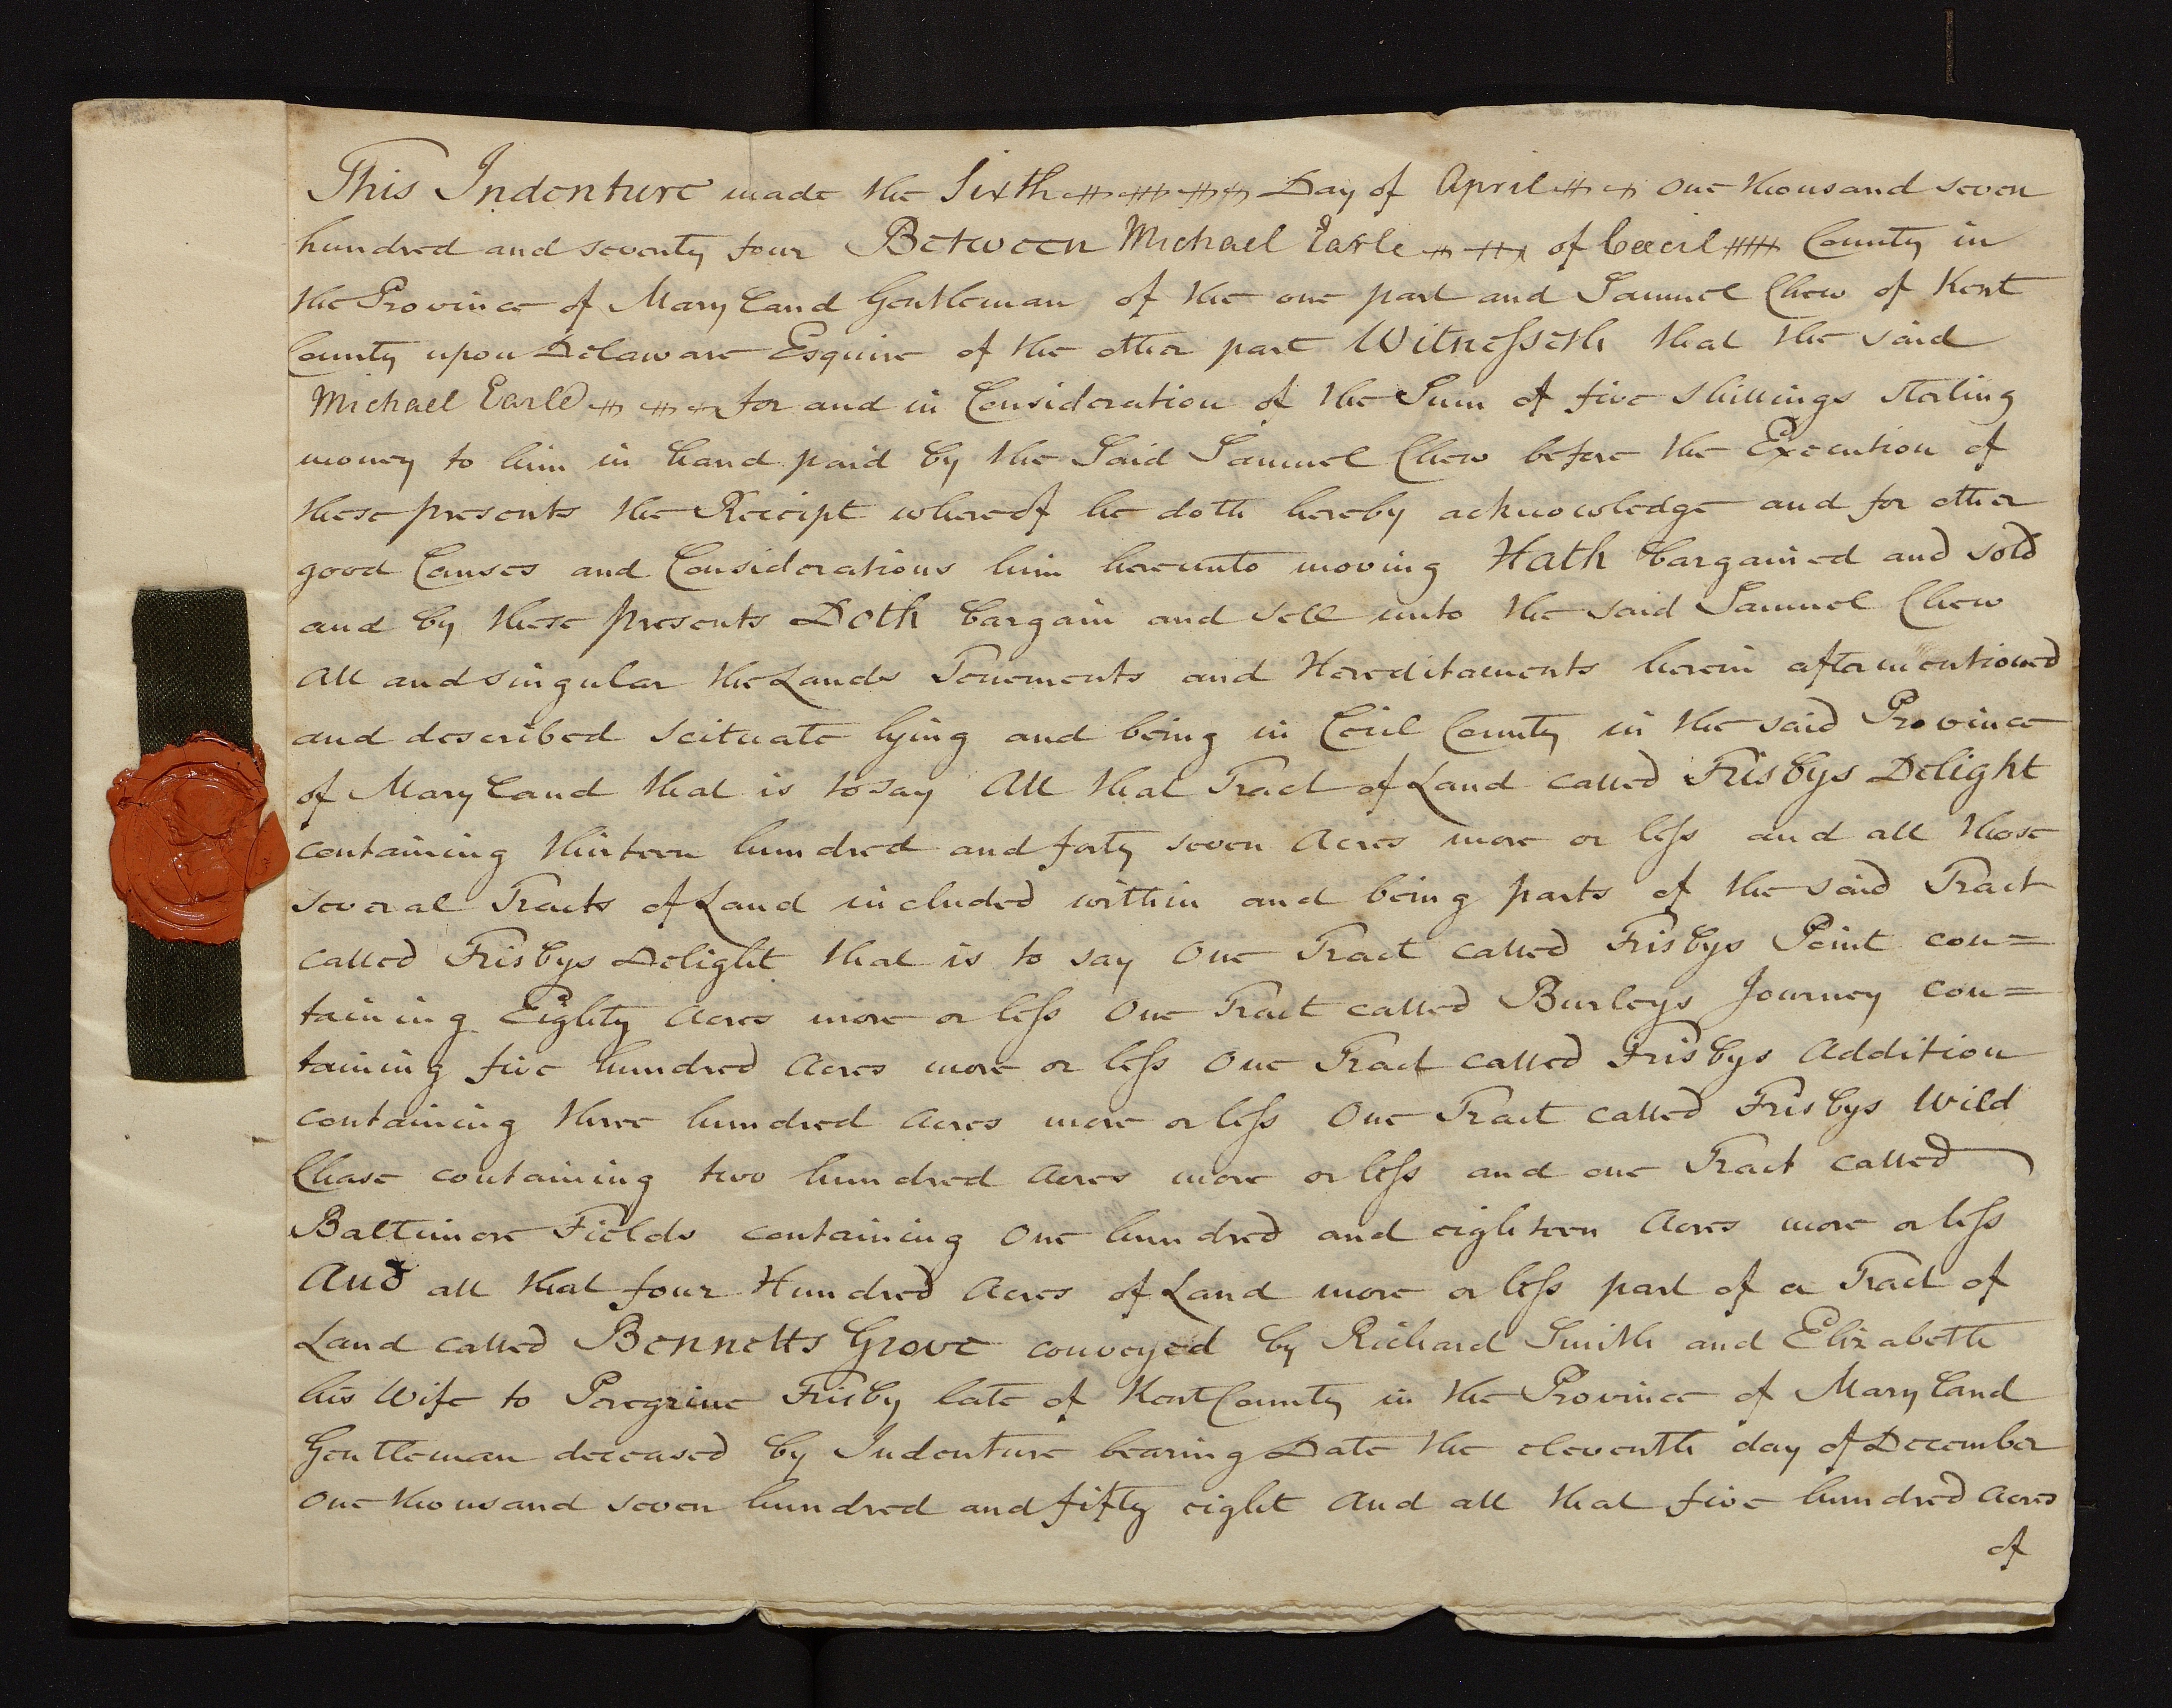 This Indenture made the Sixth Day of April one thousand seven
hundred and seventy four Between Michael Earle of Ceecil County in
the Province of Mary land Gentleman of the one part and Samuel Chew of Kent
County upon Delaware Esquire of the other part Witnesseth that the said
Michael Earle for and in Consideration of the Sum of five shillings sterling
money to him in hand paid by the Said Samuel Chew before the Execution of
these presents the Receipt whereof he doth hereby acknowledge and for other
good Causes and Considerations him hereunto moving Hath bargained and sold
and by these presents Doth bargain and sell unto the said Samuel Chew
All and singular the Lands Tenements and Hereditaments herein aftermentioned
and described scituate lying and being in Cecil County in the said Province
of Mary land that is to say All that Tract of Land called Frisbys Delight
containing thirteen hundred and forty seven Acres more or less and all those
several Tracts of Land included within and being parts of the said Tract
called Frisbys Delight that is to say One Tract called Frisbys Point con=
taining Eighty Acres more or less One Tract called Burleys Journey con=
taining five hundred Acres more or less One Tract called Frisbys Addition
containing three hundred Acres more or less One Tract called Frisbys Wild
Chase containing two hundred Acres more or less and one Tract called
Baltimore Fields containing One hundred and eighteen Acres more or less
And all that four Hundred Acres of Land more or less part of a Tract of
Land called Bennetts Grove conveyed by Richard Smith and Elizabeth
his Wife to Peregrine Frisby late of Kent County in the Province of Mary land
Gentleman deceased by Indenture bearing Date the eleventh day of December
One thousand seven hundred and fifty eight And all that five hundred Acres
of